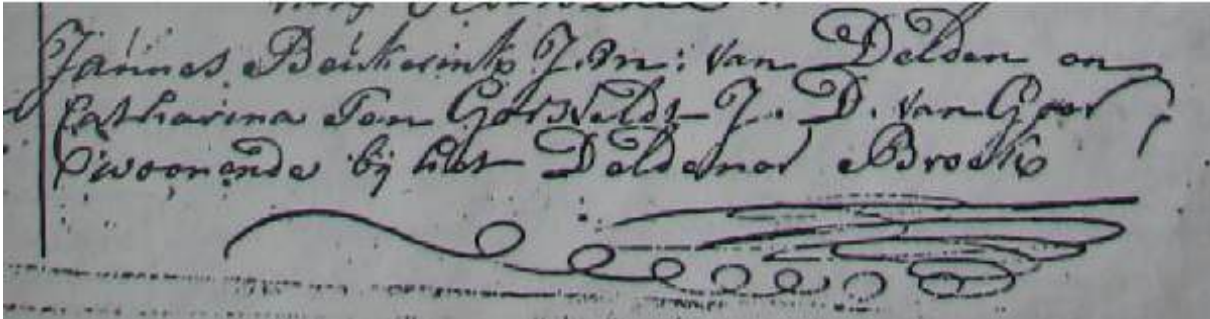 Jannes Beukerink J.m: van Delden en
Catharina Ten Gorsveldt J. D. van Goor
woonende bij het Deldener Broek